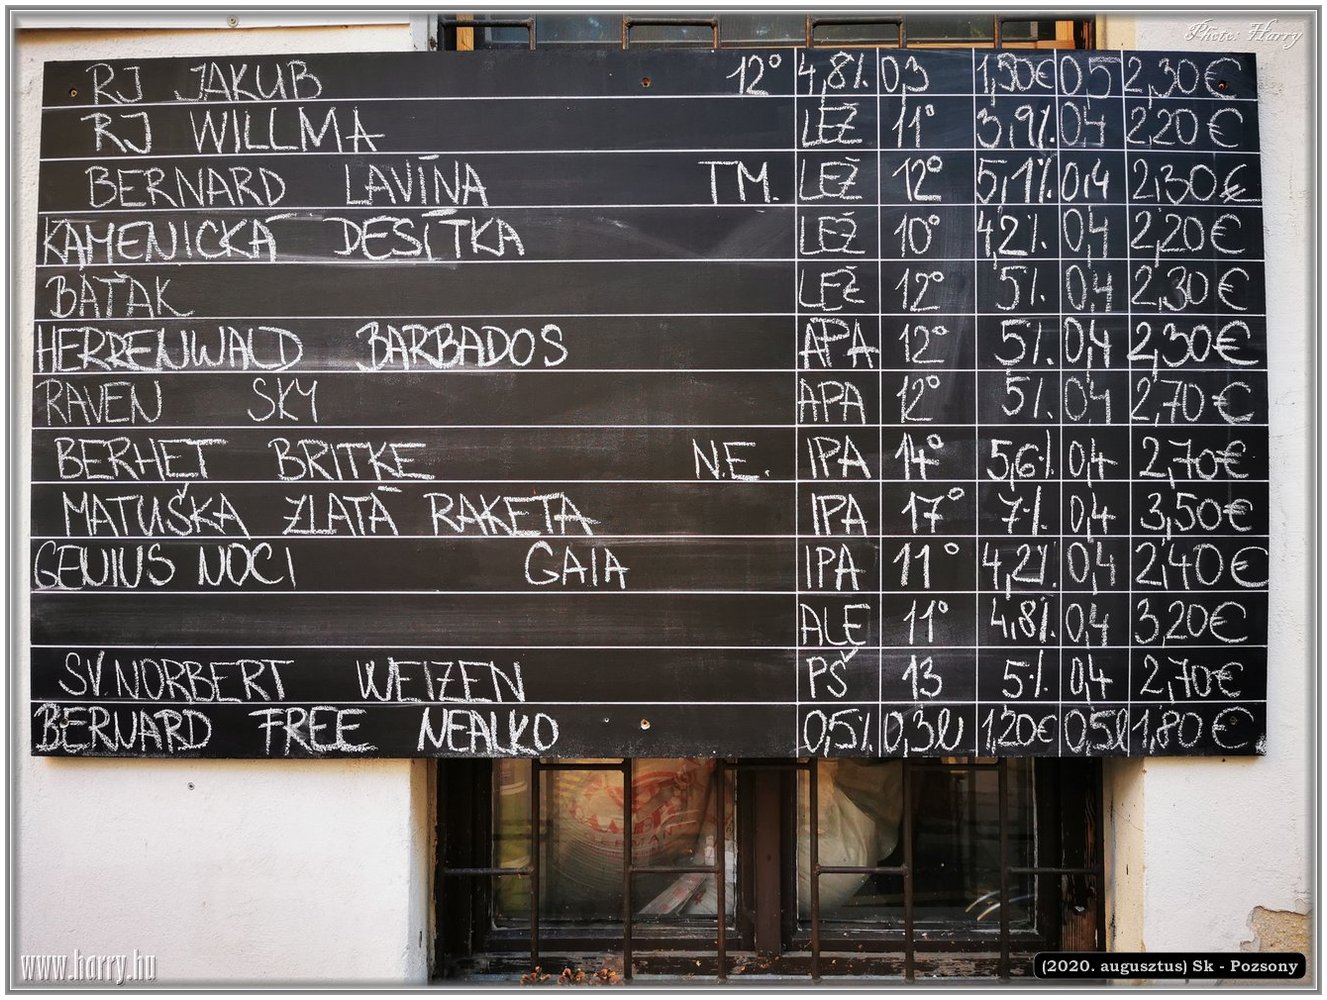 Photo: Harry
RJ JAKUB 12° 4,8% 0,3 1,50€ 0,5 2,30€
RJ WILLMA LEŽ 11° 3,9% 0,4 2,20€
BERNARD LAVÍNA TM. LEŽ 12° 5,1% 0,4 2,30€
KAMENICKÁ DESÍTKA LEŽ 10° 4,2% 0,4 2,20€
BAŤAK LEŽ 12° 5% 0,4 2,30€
HERRENWALD BARBADOS APA 12° 5% 0,4 2,30€
RAVEN SKY APA 12° 5% 0,4 2,70€
BERHET BRITKE N.E. IPA 14° 5,6% 0,4 2,70€
MATUŠKA ZLATÁ RAKETA IPA 17° 7% 0,4 3,50€
GENIUS NOCI GAIA IPA 11° 4,2% 0,4 2,40€
ALE 11° 4,8% 0,4 3,20€
SV. NORBERT WEIZEN PŠ 13 5% 0,4 2,70€
BERNARD FREE NEALKO 0,5% 0,3l 1,20€ 0,5l 1,80€
www.harry.hu
(2020. augusztus) Sk - Pozsony